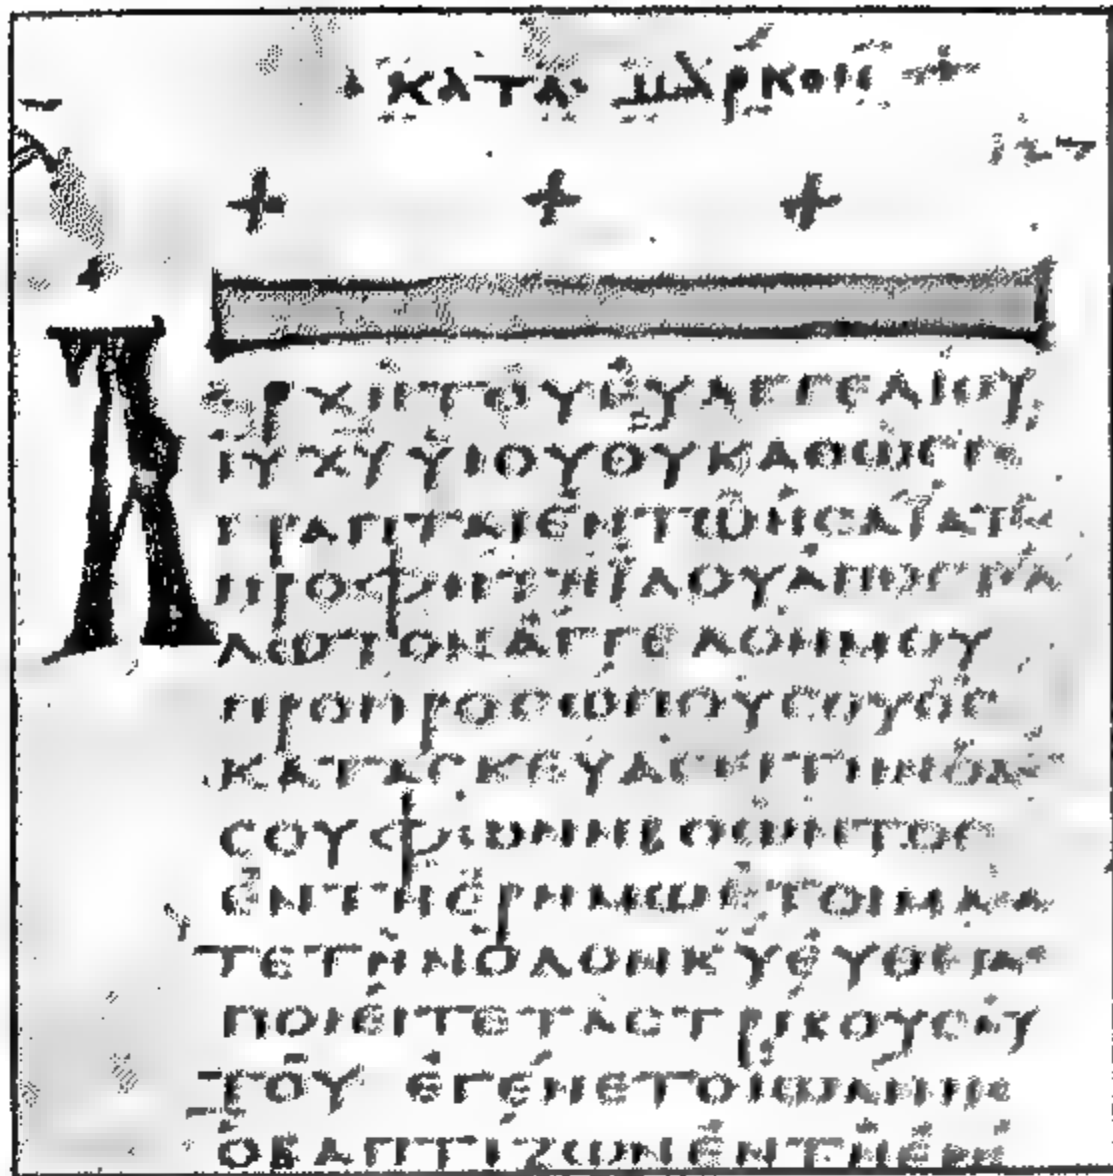 ΚΑΤΑ ΜΑΡΚΟΝ
ΑΡΧΗ ΤΟΥ ΕΥΑΓΓΕΛΙΟΥ
ΙΥ ΧΥ ΥΙΟΥ ΘΥ ΚΑΘΩC ΓΕ
ΓΡΑΠΤΑΙ ΕΝ ΤΩ ΗCΑΙΑ ΤΩ
ΠΡΟΦΗΤΗ ΙΔΟΥ ΑΠΟCΤΕ
ΛΩ ΤΟΝ ΑΓΓΕΛΟΝ ΜΟΥ
ΠΡΟ ΠΡΟCΩΠΟΥ CΟΥ ΟC
ΚΑΤΑCΚΕΥΑCΕΙ ΤΗΝ ΟΔΟ
CΟΥ ΦΩΝΗ ΒΟΩΝΤΟC
ΕΝ ΤΗ ΕΡΗΜΩ ΕΤΟΙΜΑCΑ
ΤΕ ΤΗΝ ΟΔΟΝ ΚΥ ΕΥΘΕΙΑC
ΠΟΙΕΙΤΕ ΤΑC ΤΡΙΒΟΥC ΑΥ
ΤΟΥ ΕΓΕΝΕΤΟ ΙΩΑΝΝΗC
Ο ΒΑΠΤΙΖΩΝ ΕΝ ΤΗ ΕΡΗ